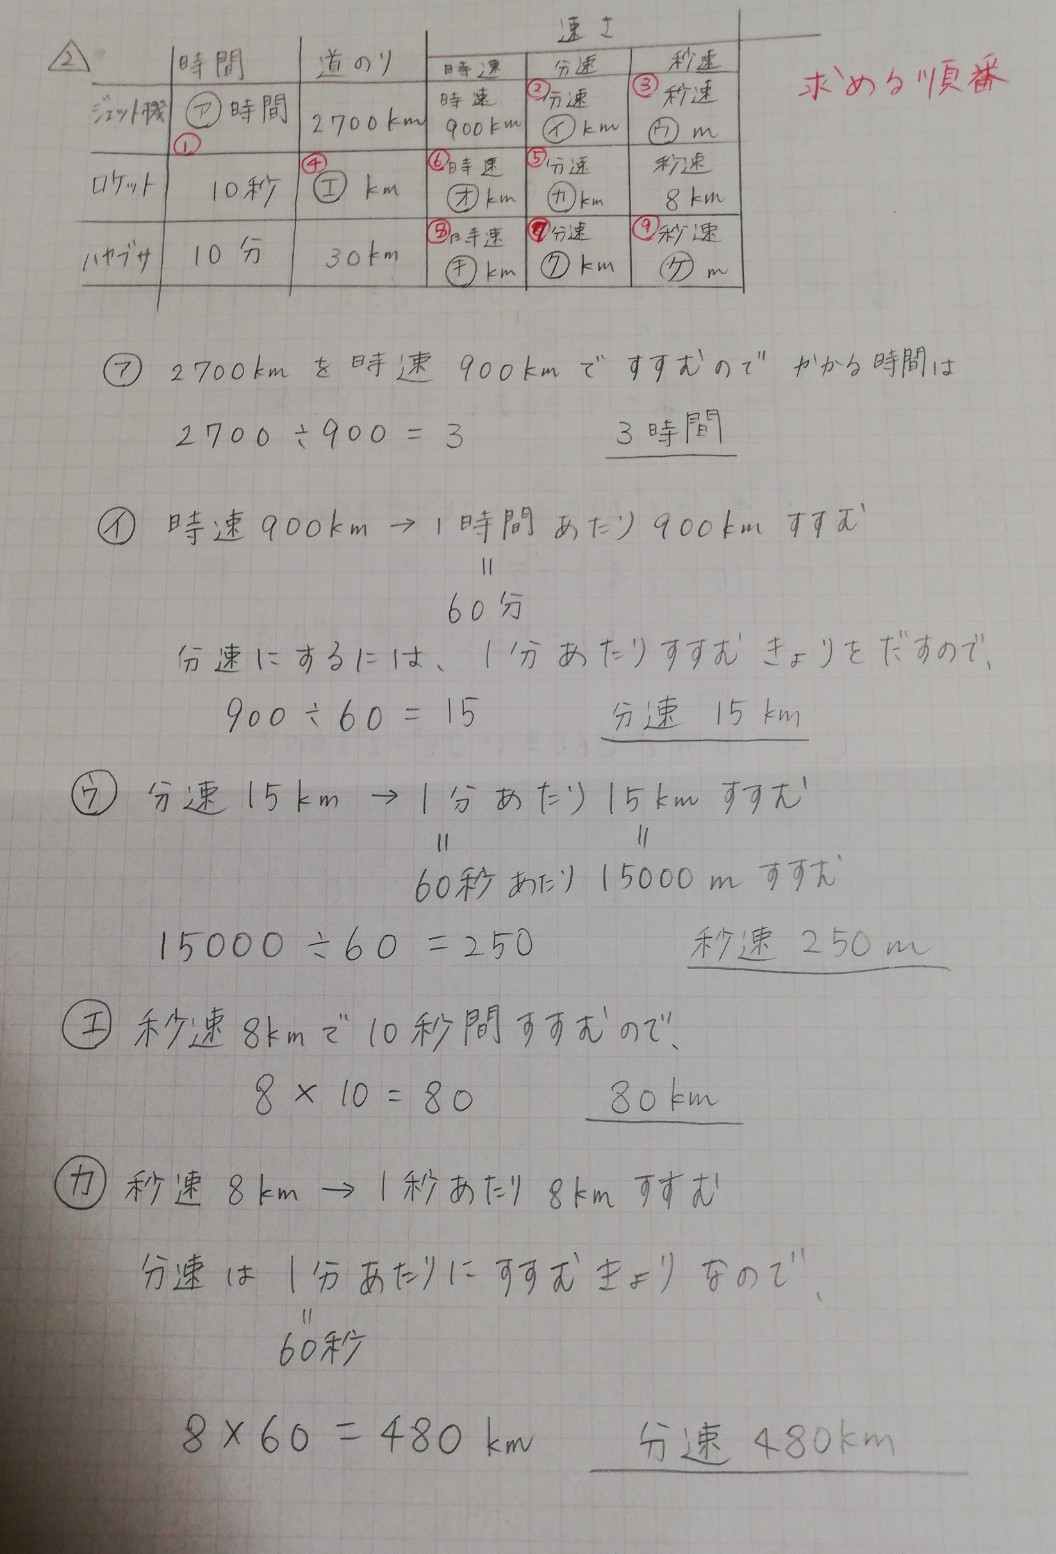 2 時間 道のり 速さ
時速 分速 秒速
求める順番
ジェット機 ① ㋐時間 2700km 時速900km ② 分速㋑km ③ 秒速㋒m
ロケット 10秒 ④ ㋓km ⑥ 時速㋔km ⑤ 分速㋕km 秒速8km
ハヤブサ 10分 30km ⑧ 時速㋖km ⑦ 分速㋗km ⑨ 秒速㋘m
㋐ 2700kmを時速900kmですすむので かかる時間は
2700÷900=3 3時間
㋑ 時速900km→1時間あたり900kmすすむ
=
60分
分速にするには、1分あたりすすむきょりをだすので、
900÷60=15 分速 15km
㋒ 分速15km→1分あたり15kmすすむ
= =
60秒あたり15000mすすむ
15000÷60=250 秒速 250m
㋓ 秒速8kmで10秒間すすむので、
8×10=80 80km
㋕ 秒速8km→1秒あたり8kmすすむ
分速は1分あたりにすすむきょりなので、
=
60秒
8×60=480km 分速 480km